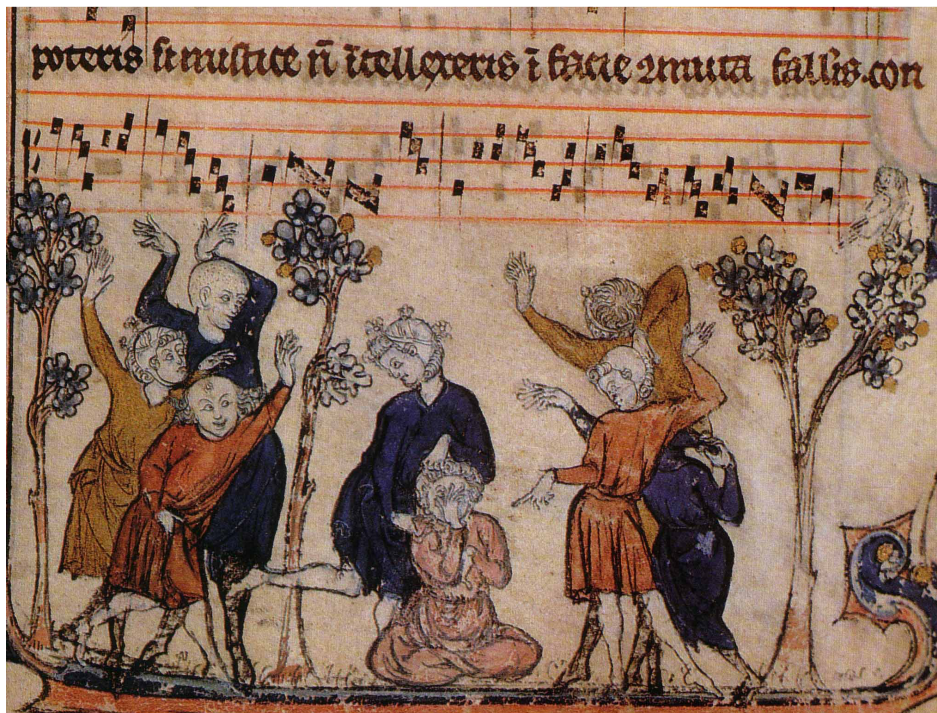 poteris si mistice n̄ ītellexeris ī facie ꝯmuta fallis. con